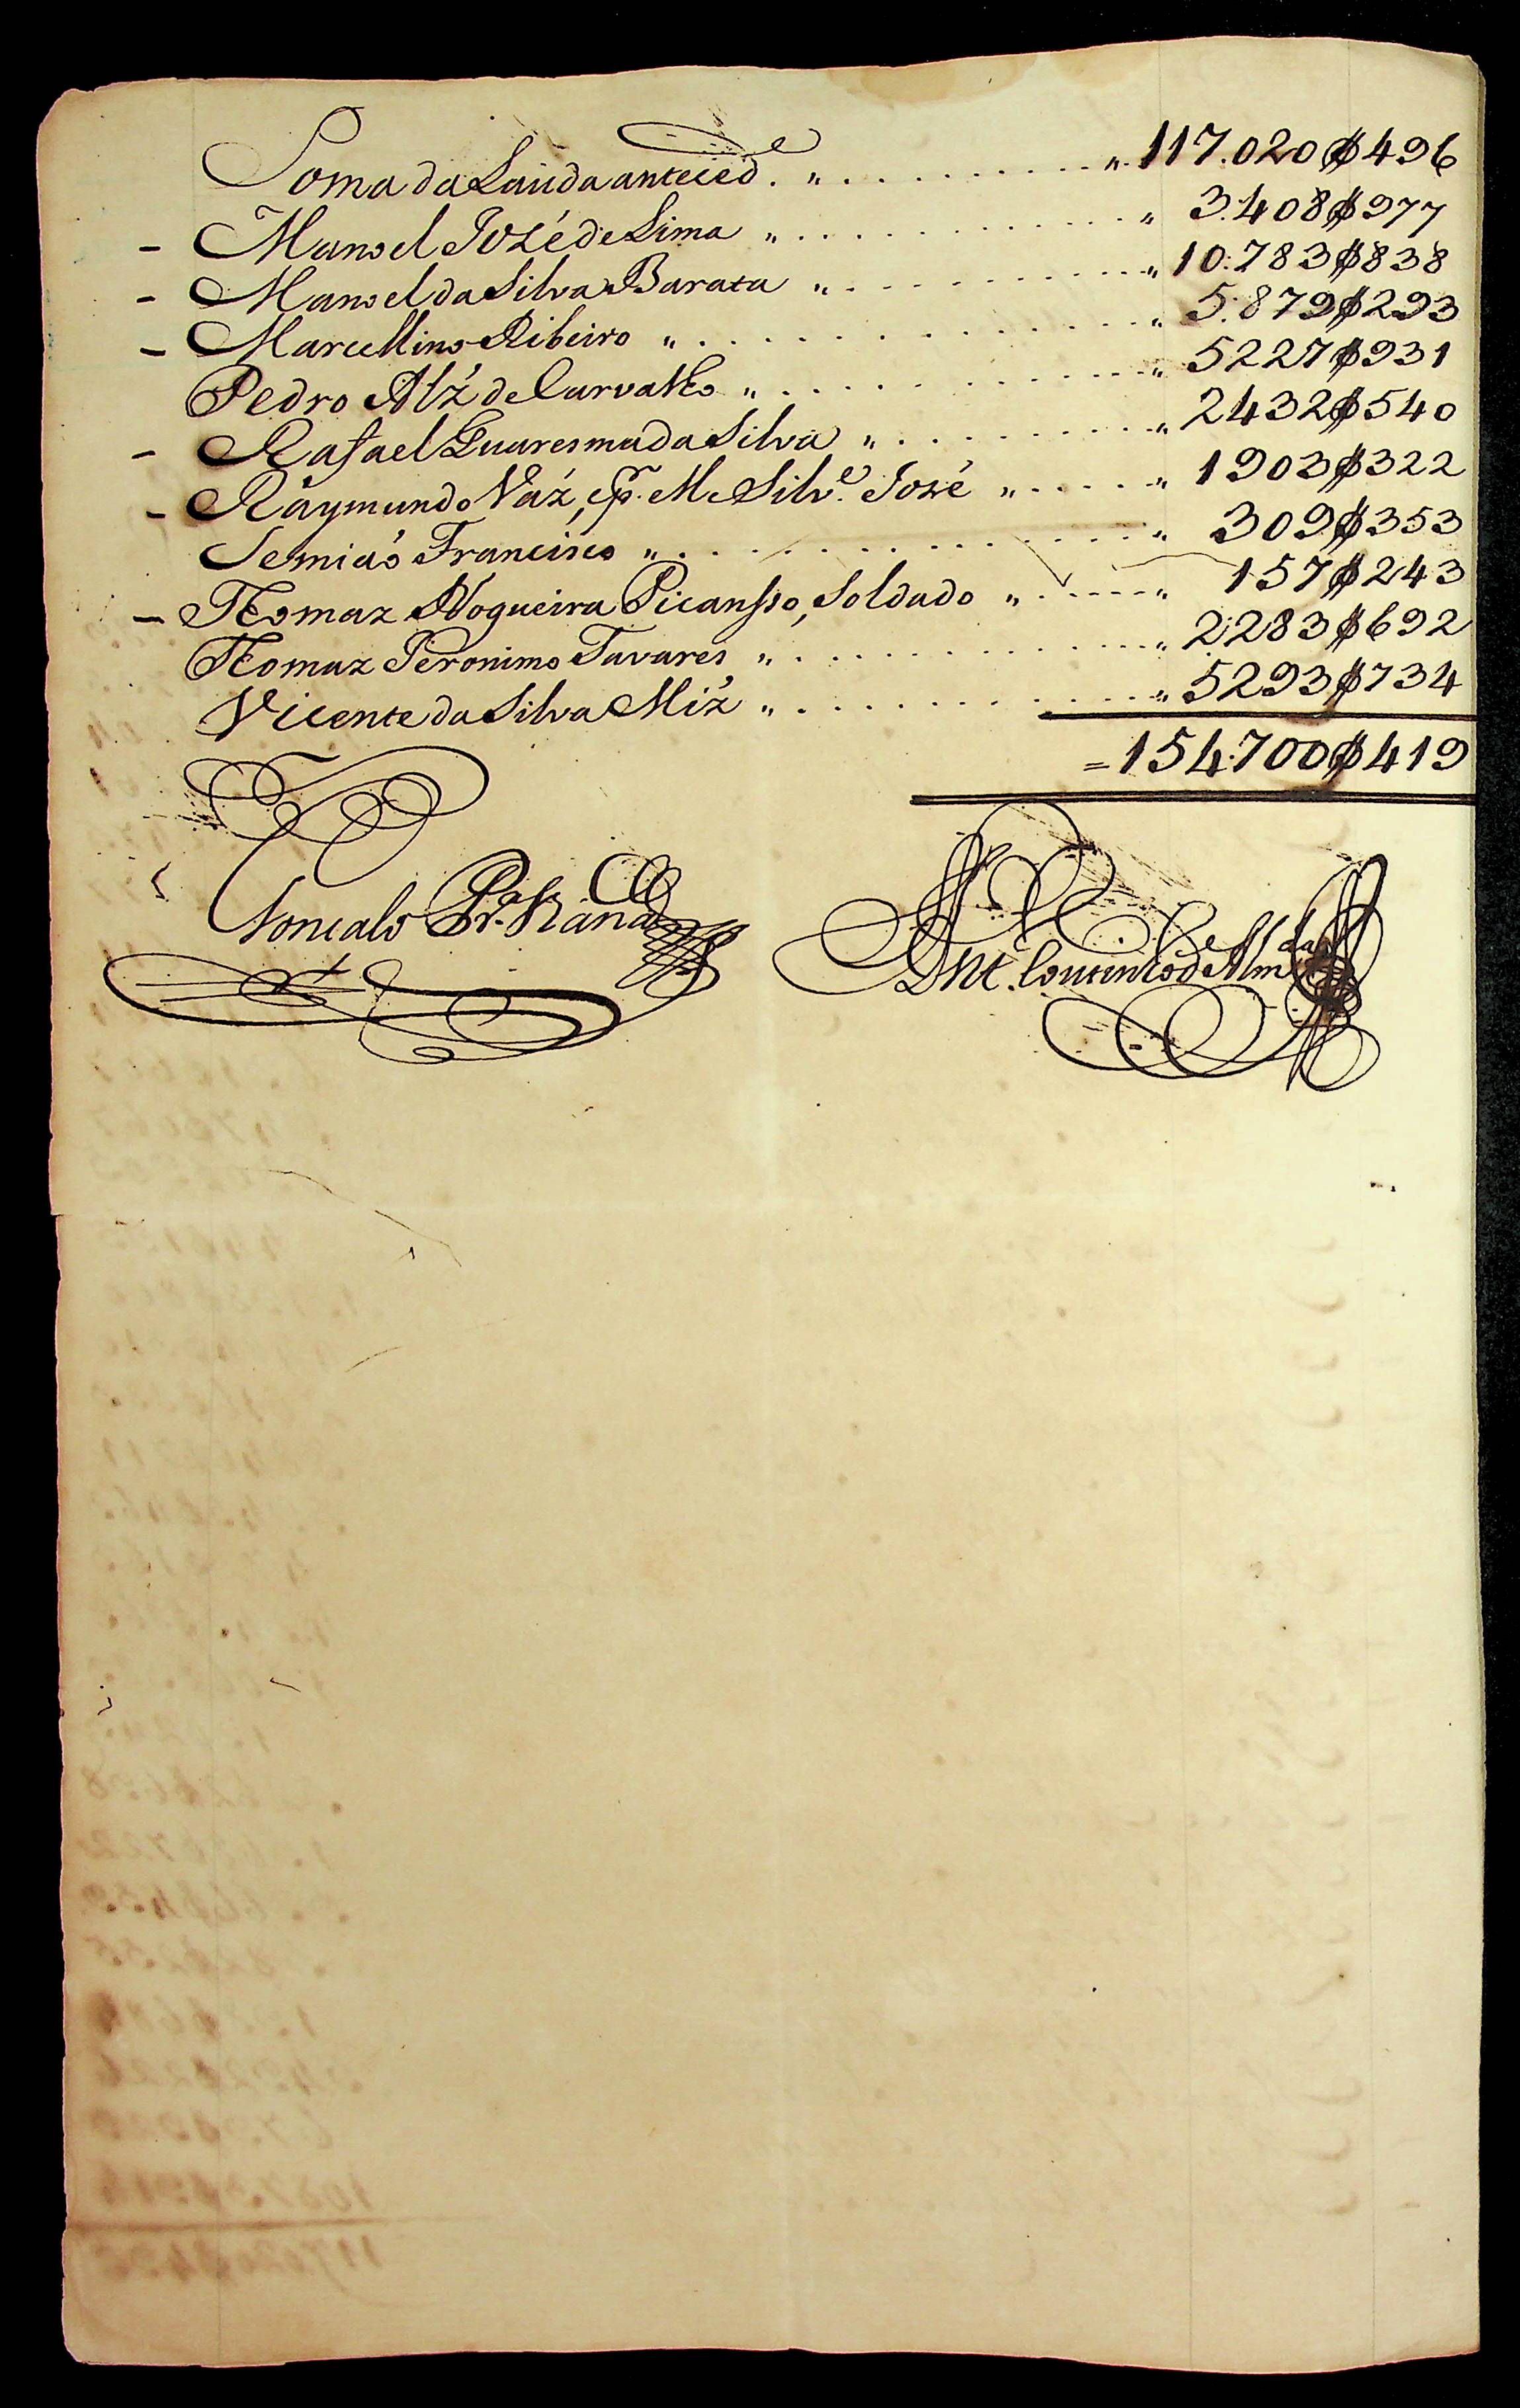 Soma da Lauda anteced.e " . . . . . . . . . . " 117.020$496
- Manoel Jozé de Lima " . . . . . . . . . . " 3.408$977
- Manoel da Silva Barata " . . . . . . . . . " 10.783$838
- Marcellino Ribeiro " . . . . . . . . . . . " 5.879$293
Pedro Alz' de Carvalho " . . . . . . . . . . " 5227$931
- Rafael Quaresma da Silva " . . . . . . . . " 2432$540
- Raymundo Váz, e Sr. M.el Silv.e José " . . . . " 1903$322
Semiáo Francisco " . . . . . . . . . . . . " 309$353
- Thomaz Nogueira Picansso, Soldado " . . . . " 157$243
Thomaz Jeronimo Tavares " . . . . . . . . . " 2.283$692
Vicente da Silva Miz' " . . . . . . . . . . " 5293$734
= 154.700$419
Goncalo Pr.a
Ant. Coutinho d'Alm.da